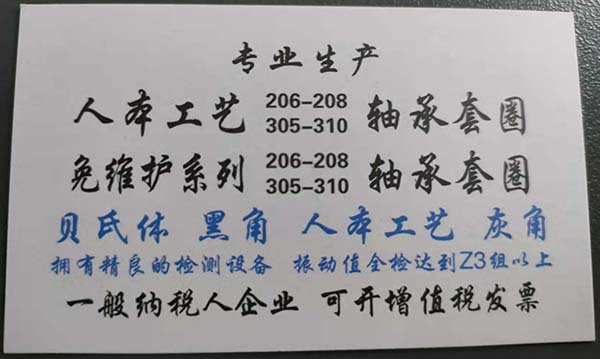 专业生产
人本工艺 206-208 305-310 轴承套圈
免维护系列 206-208 305-310 轴承套圈
贝氏体 黑角 人本工艺 灰角
拥有精良的检测设备 振动值全检达到Z3组以上
一般纳税人企业 可开增值税发票